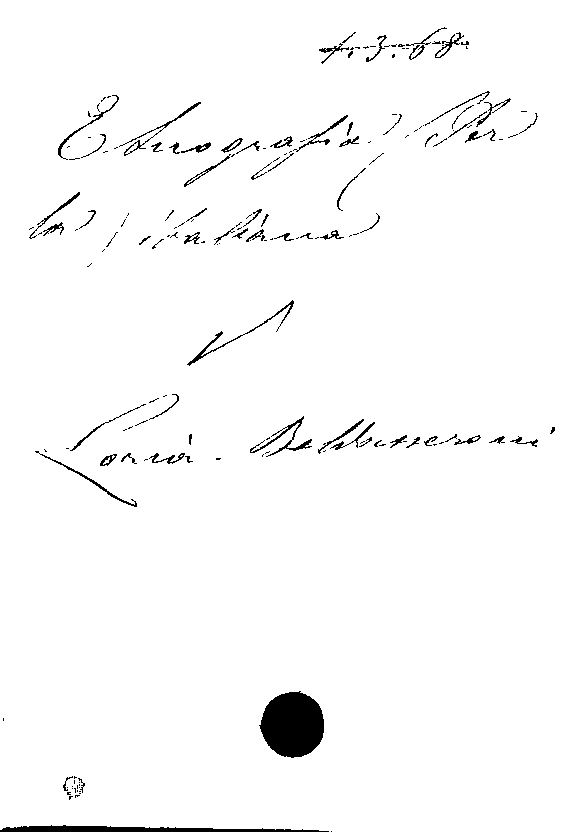 4.3.68.
Etnografia (Per
la) italiana
Loria - Baldasseroni